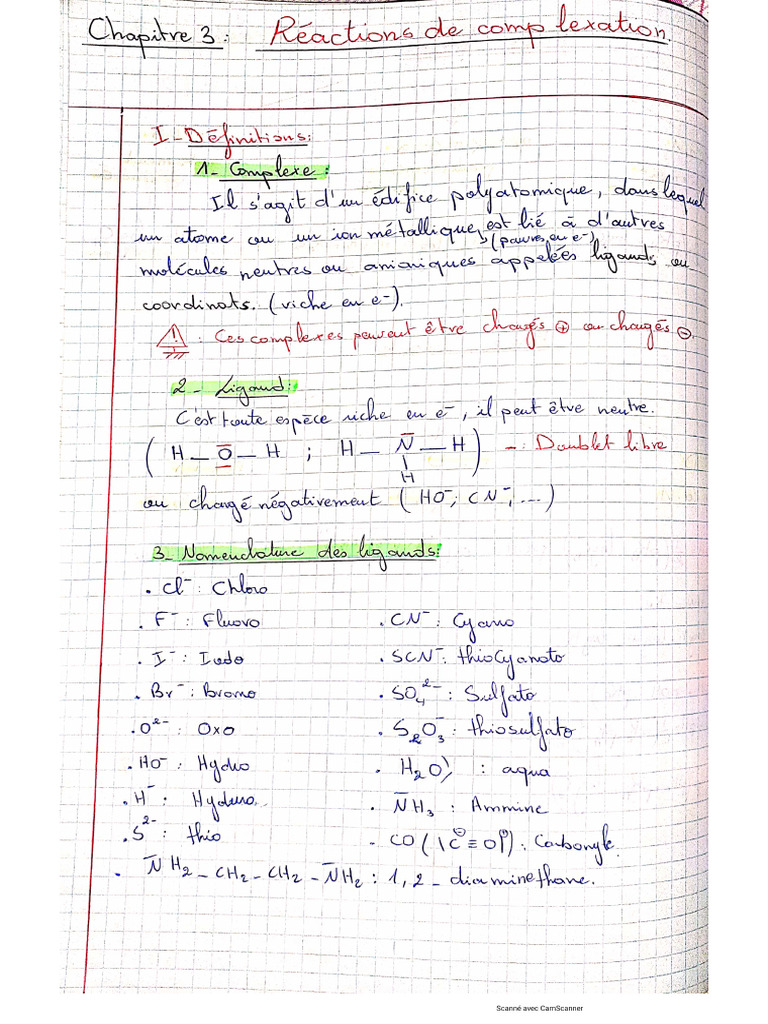 Chapitre 3 : Réactions de complexation.
I - Définitions:
1 - Complexe :
Il s'agit d'un édifice polyatomique, dans lequel
un atome ou un ion métallique, est lié à d'autres
(pauvres en e-)
molécules neutres ou anioniques appelées ligands ou
coordinats. (riche en e-).
⚠ : Ces complexes peuvent être chargés ⊕ ou chargés ⊖.
2 - Ligand :
C'est toute espèce riche en e-, il peut être neutre.
(H — O — H ; H — N — H) - : Doublet libre
H
ou chargé négativement (HO⁻; CN⁻, ...)
3 - Nomenclature des ligands:
. Cl⁻ : Chloro
. F⁻ : Fluoro . CN⁻ : Cyano
. I⁻ : Iodo . SCN⁻ : thioCyanato
. Br⁻ : Bromo . SO₄²⁻ : Sulfato
. O²⁻ : Oxo . S₂O₃⁻ : thiosulfato
. HO⁻ : Hydro . H₂O : aqua
. H⁻ : Hyduro . NH₃ : Ammine
. S²⁻ : thio . CO (|C≡O|) : Carbonyle.
. NH₂ - CH₂ - CH₂ - NH₂ : 1, 2 - diaminethane.
Scanné avec CamScanner